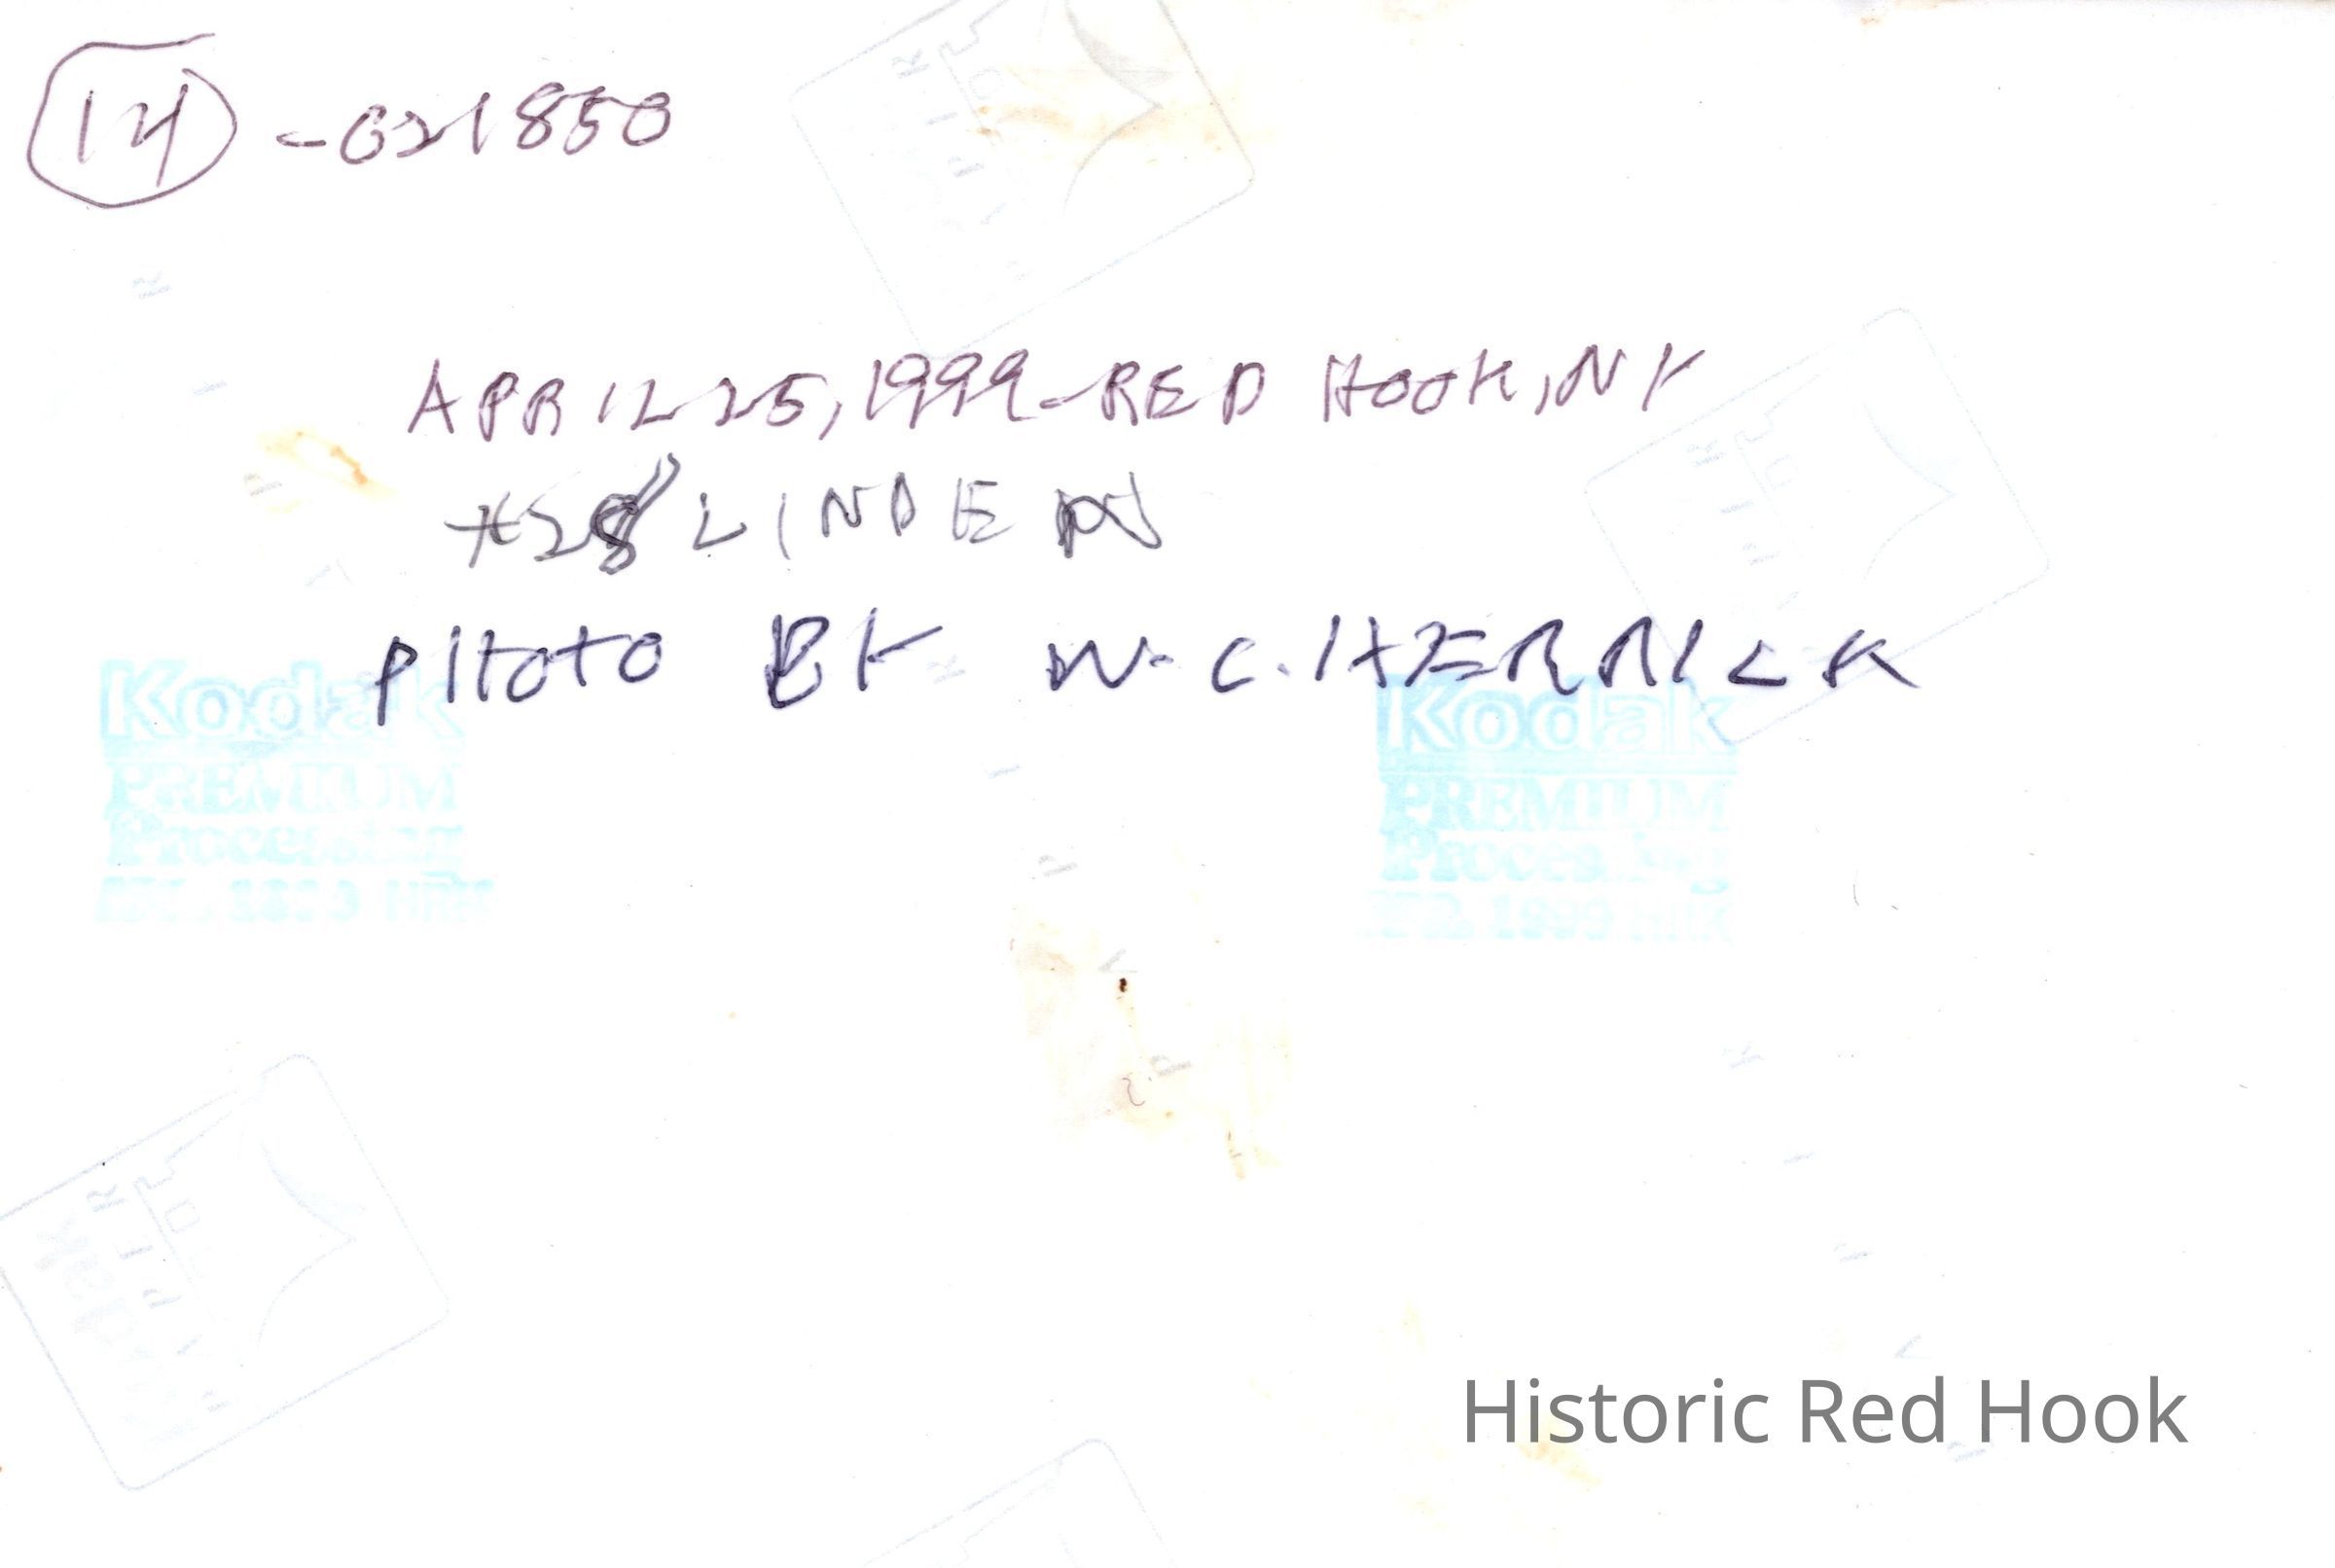 14 - 021850
APRIL 25, 1999 - RED HOOK, NY
#28 LINDEN
PHOTO BY W. C. HERRICK
Kodak Kodak
PREMIUM PREMIUM
Processing Processing
1999
Historic Red Hook